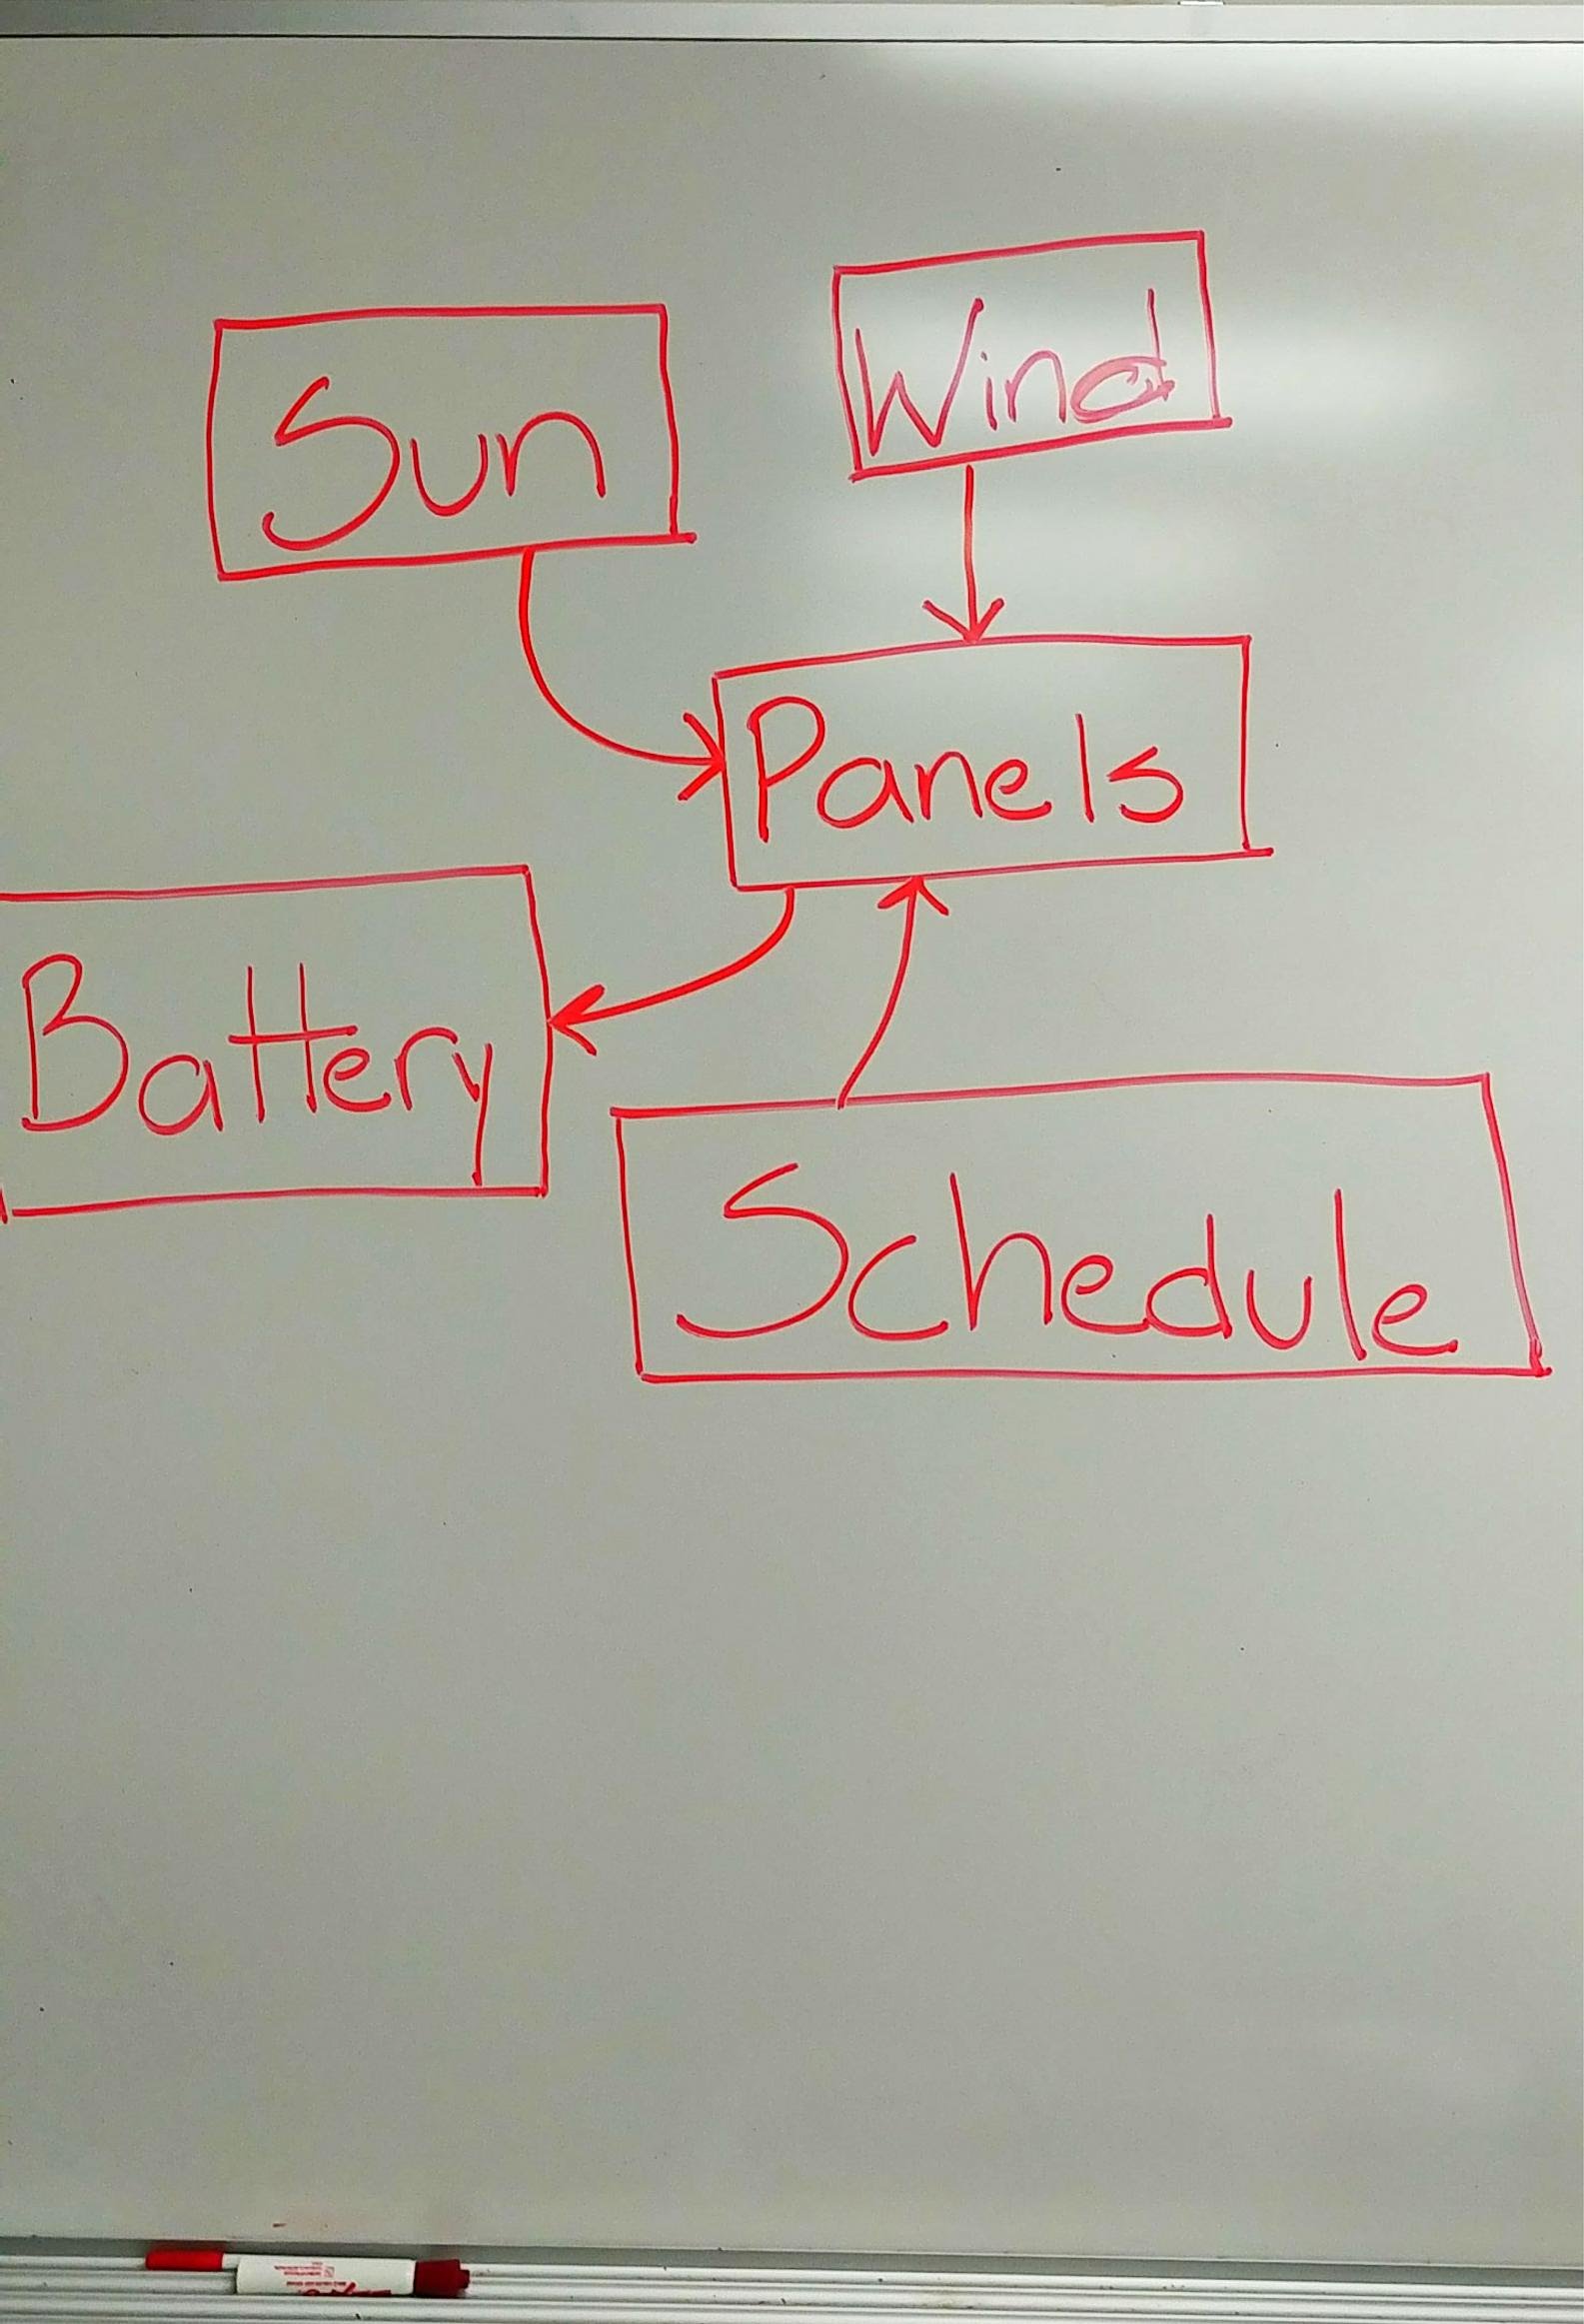 Sun
Wind
Panels
Battery
Schedule